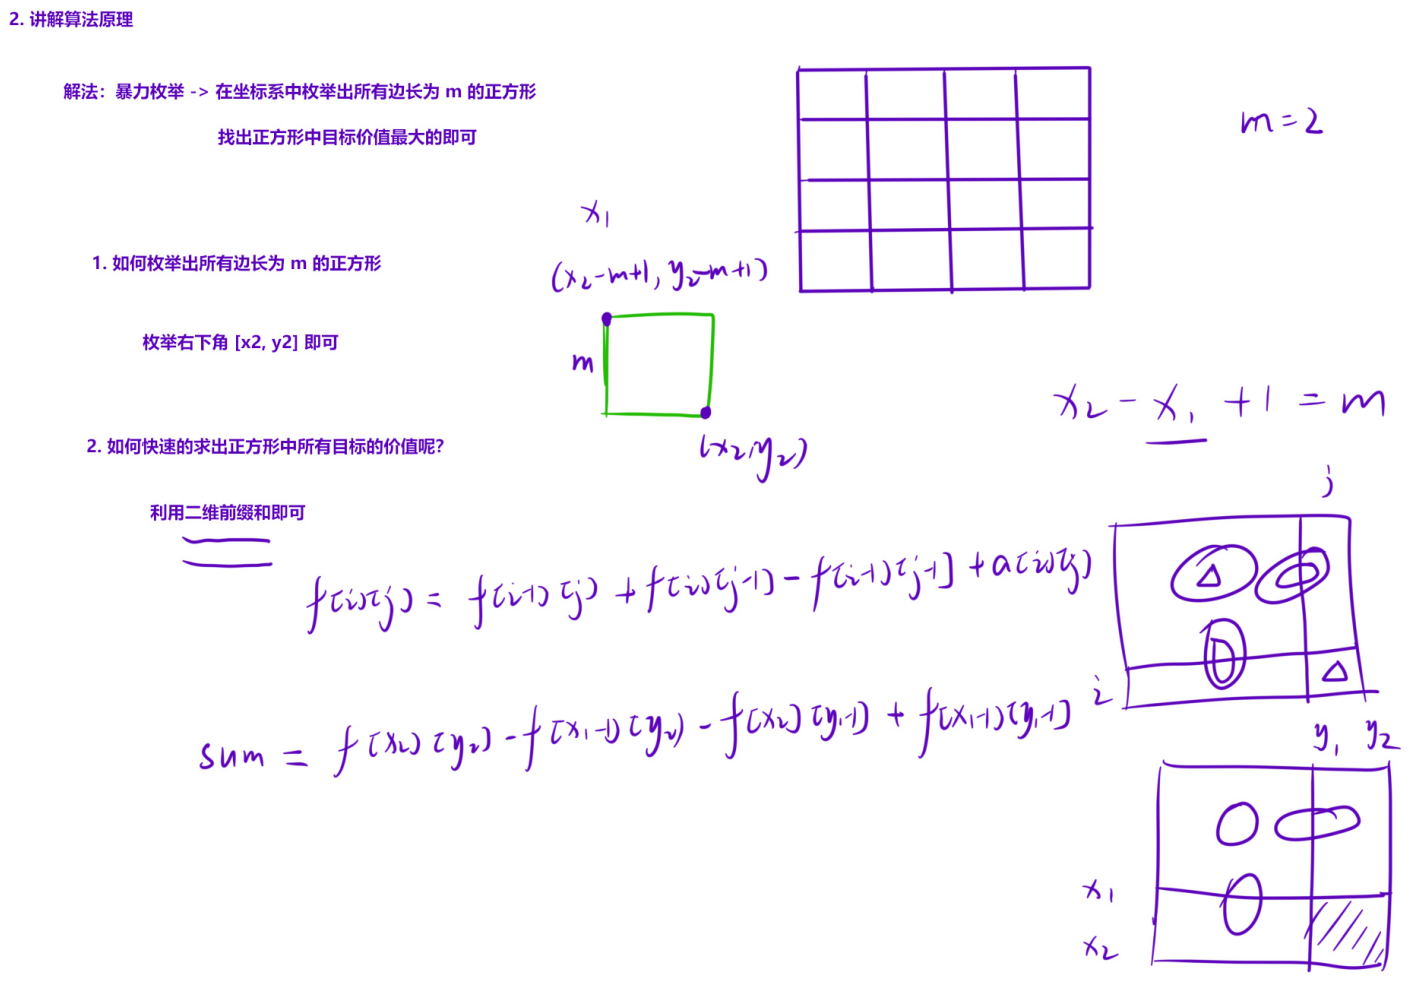 2. 讲解算法原理
解法：暴力枚举 -> 在坐标系中枚举出所有边长为 m 的正方形
找出正方形中目标价值最大的即可
m=2
x₁
1. 如何枚举出所有边长为 m 的正方形
(x₂-m+1, y₂-m+1)
枚举右下角 [x2, y2] 即可
m
x₂ - x₁ + 1 = m
2. 如何快速的求出正方形中所有目标的价值呢？
(x₂, y₂)
利用二维前缀和即可
j
f[i][j] = f[i-1][j] + f[i][j-1] - f[i-1][j-1] + a[i][j]
i
sum = f[x₂][y₂] - f[x₁-1][y₂] - f[x₂][y₁-1] + f[x₁-1][y₁-1]
y₁ y₂
x₁
x₂